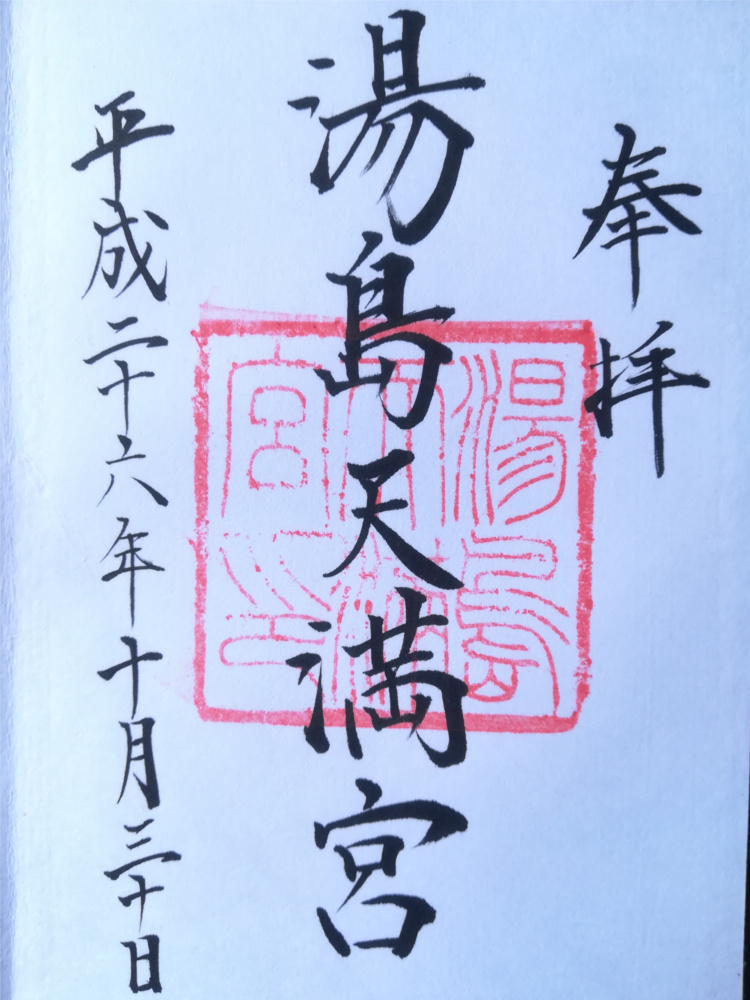 奉拝
湯島天満宮
平成二十六年十月三十日
湯島天満宮印